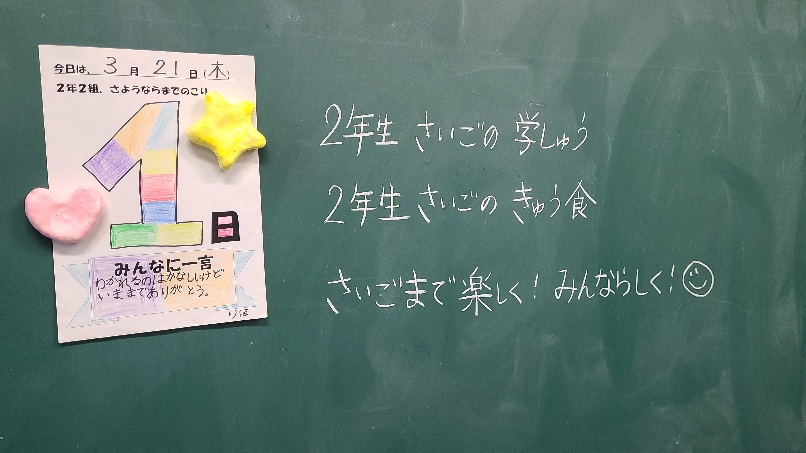 今日は、3月21日(木)
2年2組、さようならまでのこり
1日
みんなに一言
わかれるのはかなしいけど
いままでありがとう。
りほ
2年生 さいごの 学しゅう
2年生 さいごの きゅう食
さいごまで楽しく！みんならしく！